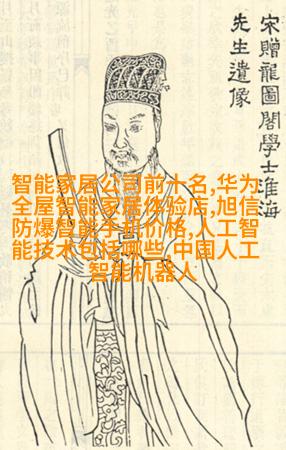 宋贈龍圖閣學士淮海
先生遺像
智能家居公司前十名,华为
全屋智能家居体验店,旭信
防爆智能手机价格,人工智
能技术包括哪些,中国人工
智能机器人